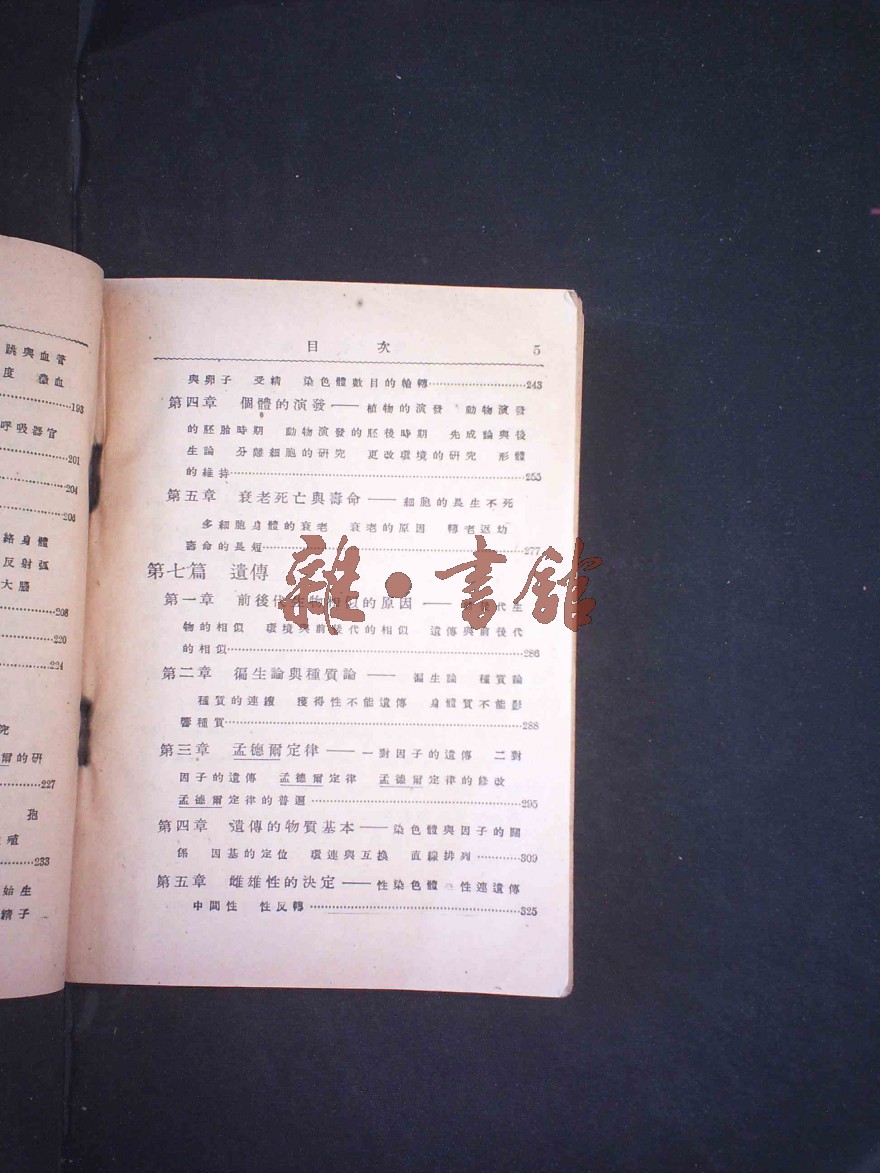 跳與血管
度 森血
193
呼吸器官
201
204
206
絡身體
反射弧
大腦
208
220
224
究
爾的研
227
孢
殖
233
始生
精子
目 次 5
與卵子 受精 染色體數目的輪轉 243
第四章 個體的演發——植物的演發 動物演發
的胚胎時期 動物演發的胚後時期 先成論與後
生論 分離細胞的研究 更改環境的研究 形體
的維持 255
第五章 衰老死亡與壽命——細胞的長生不死
多細胞身體的衰老 衰老的原因 轉老返幼
壽命的長短 277
第七篇 遺傳
第一章 前後代生物相似的原因——前後代生
物的相似 環境與前後代的相似 遺傳與前後代
的相似 286
第二章 徧生論與種質論——徧生論 種質論
種質的連續 獲得性不能遺傳 身體質不能影
響種質 288
第三章 孟德爾定律——一對因子的遺傳 二對
因子的遺傳 孟德爾定律 孟德爾定律的修改
孟德爾定律的普遍 295
第四章 遺傳的物質基本——染色體與因子的關
係 因基的定位 環連與互換 直線排列 309
第五章 雌雄性的決定——性染色體 性連遺傳
中間性 性反轉 325
雜·書館